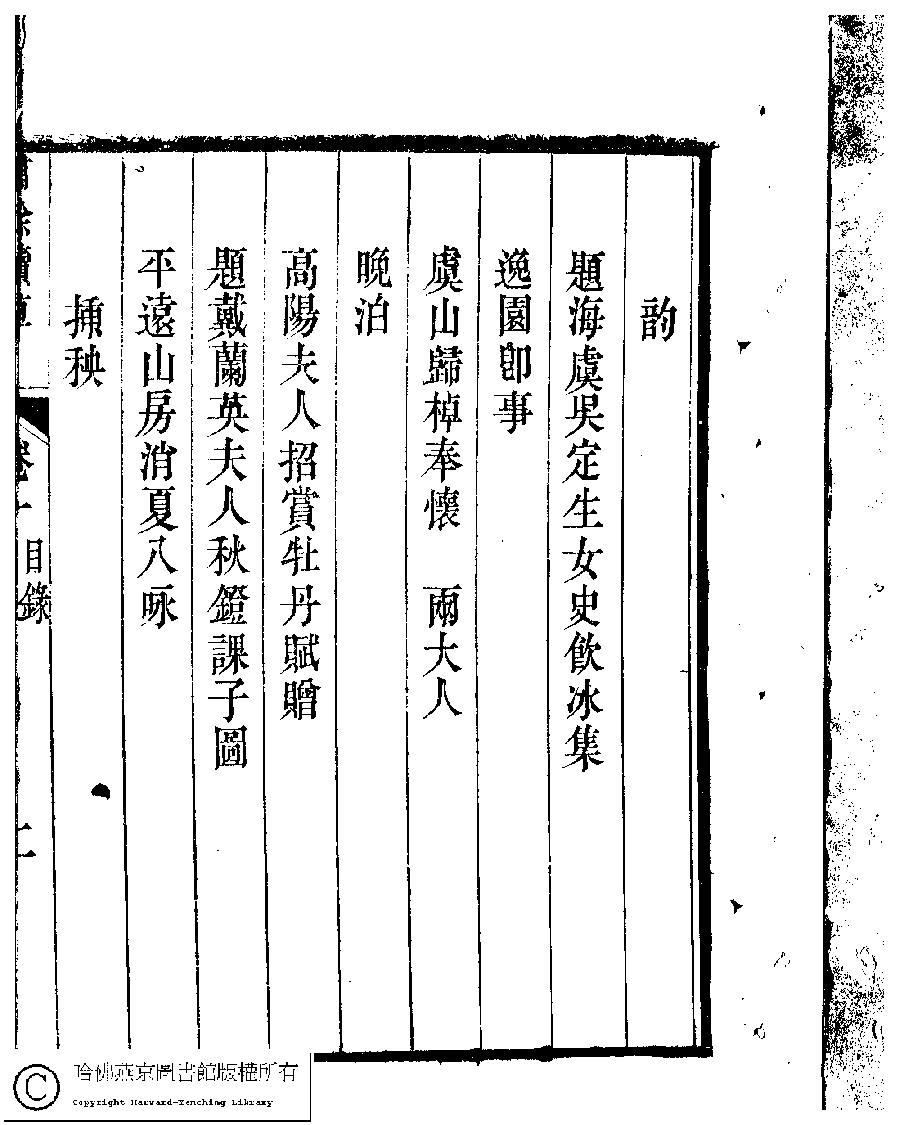 韵
題海虞吳定生女史飲冰集
逸園卽事
虞山歸棹奉懷　兩大人
晚泊
高陽夫人招賞牡丹賦贈
題戴蘭英夫人秋鐙課子圖
平遠山房消夏八咏
揷秧
目錄
哈佛燕京圖書館版權所有
Copyright Harvard-Yenching Library